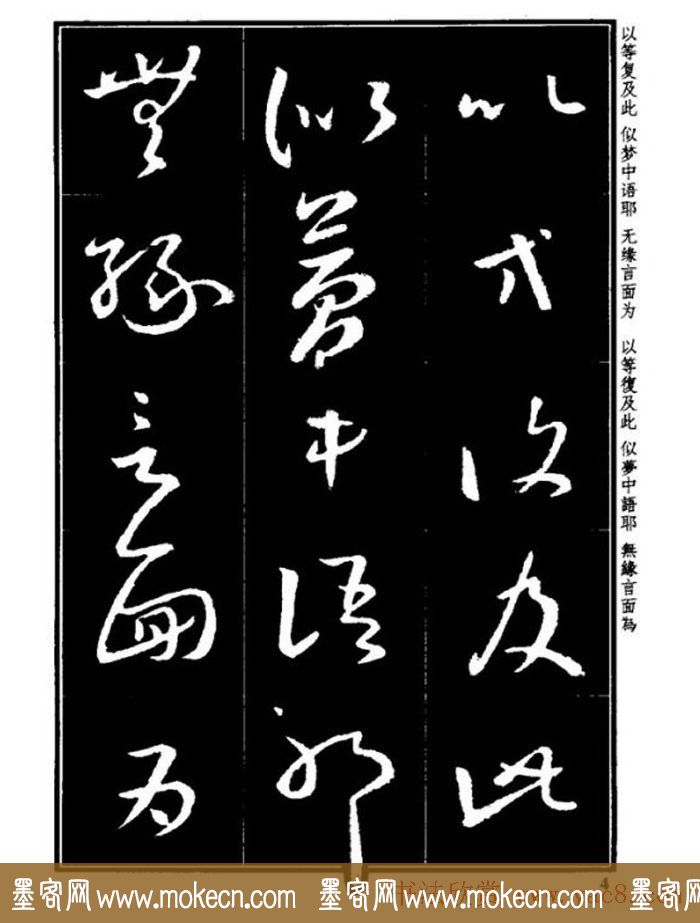 以等復及此
似夢中語耶
無緣言面為
以等复及此 似梦中语耶 无缘言面为 以等復及此 似夢中語耶 無緣言面為
4
墨客网 www.mokecn.com 墨客网 www.mokecn.com 墨客网
书法欣赏